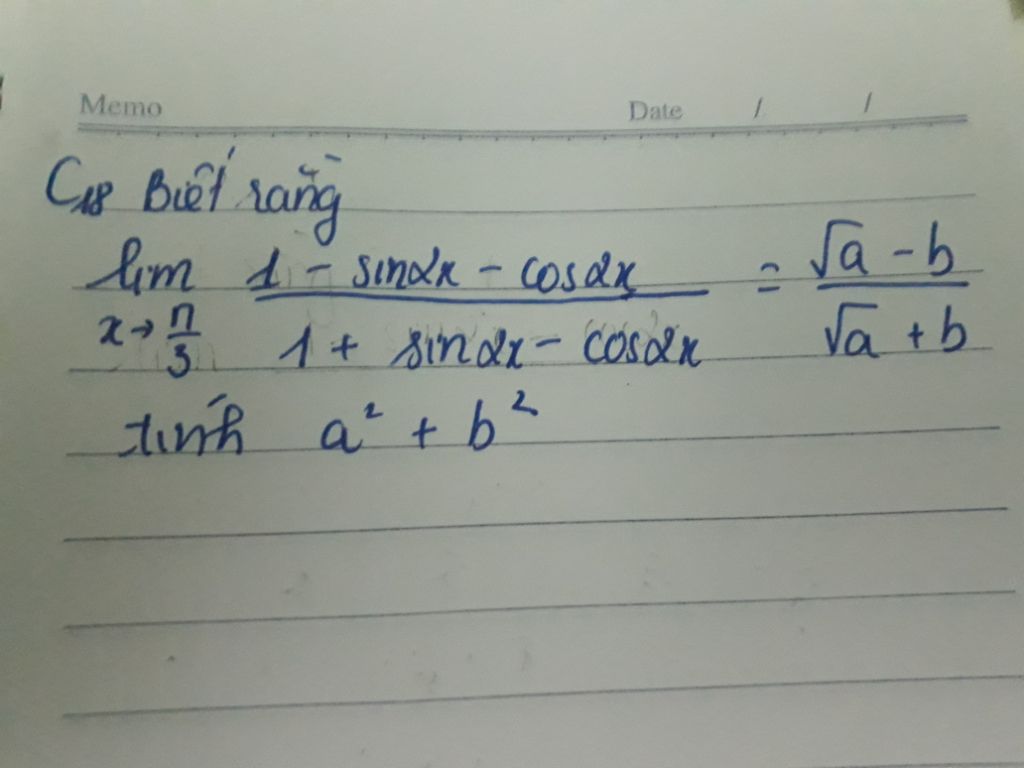 Memo Date / /
C18 Biết rằng
lim 1 - sin2x - cos2x = √a - b
x→π/3 1 + sin2x - cos2x √a + b
tính a² + b²